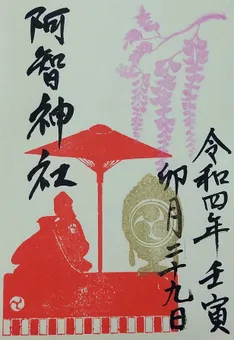 阿智神社
令和四年 壬寅
卯月二十九日